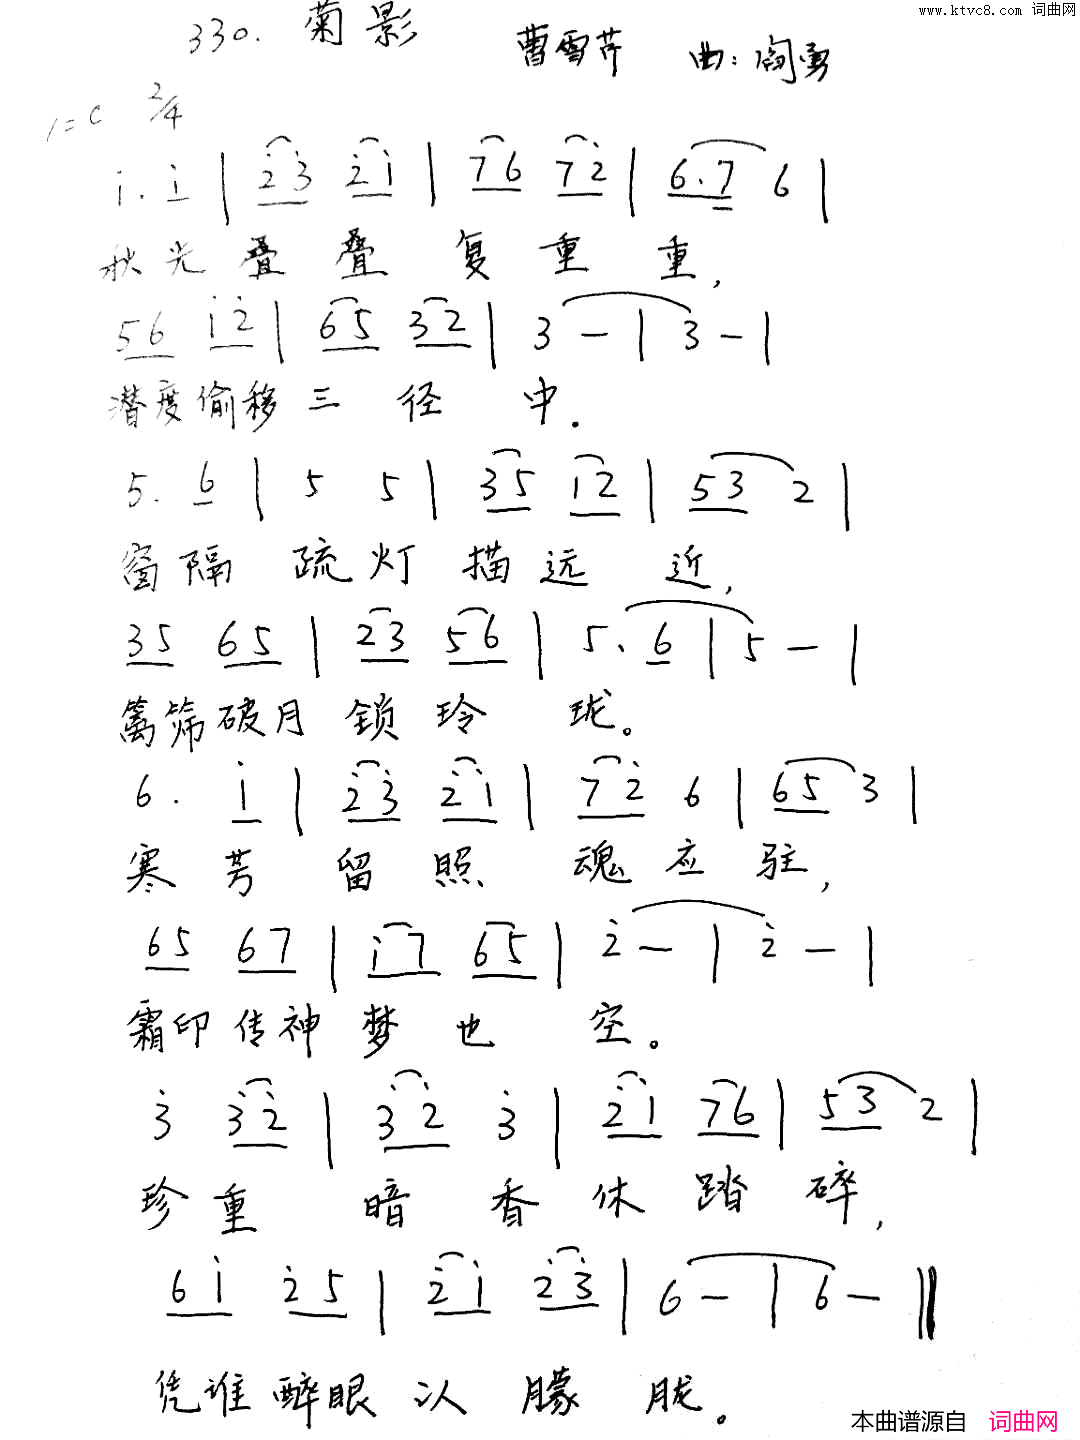 www.ktvc8.com 词曲网
330. 菊影 曹雪芹 曲：阎勇
1=C 2/4
i. i | 2̇3̇ 2̇i | 76 72̇ | 6.7 6 |
秋光叠叠复重重，
56 i2̇ | 65 32 | 3 — | 3 — |
潜度偷移三径中.
5. 6 | 5 5 | 35 12 | 53 2 |
窗隔疏灯描远近，
35 65 | 23 56 | 5. 6 | 5 — |
篱筛破月锁玲珑。
6. i | 2̇3̇ 2̇i | 72̇ 6 | 65 3 |
寒芳留照魂应驻，
65 67 | i7 65 | 2̇ — | 2̇ — |
霜印传神梦也空。
3̇ 3̇2̇ | 3̇2̇ 3̇ | 2̇i 76 | 53 2 |
珍重暗香休踏碎，
6i 2̇5 | 2̇i 2̇3̇ | 6 — | 6 — ‖
凭谁醉眼认朦胧。
本曲谱源自 词曲网